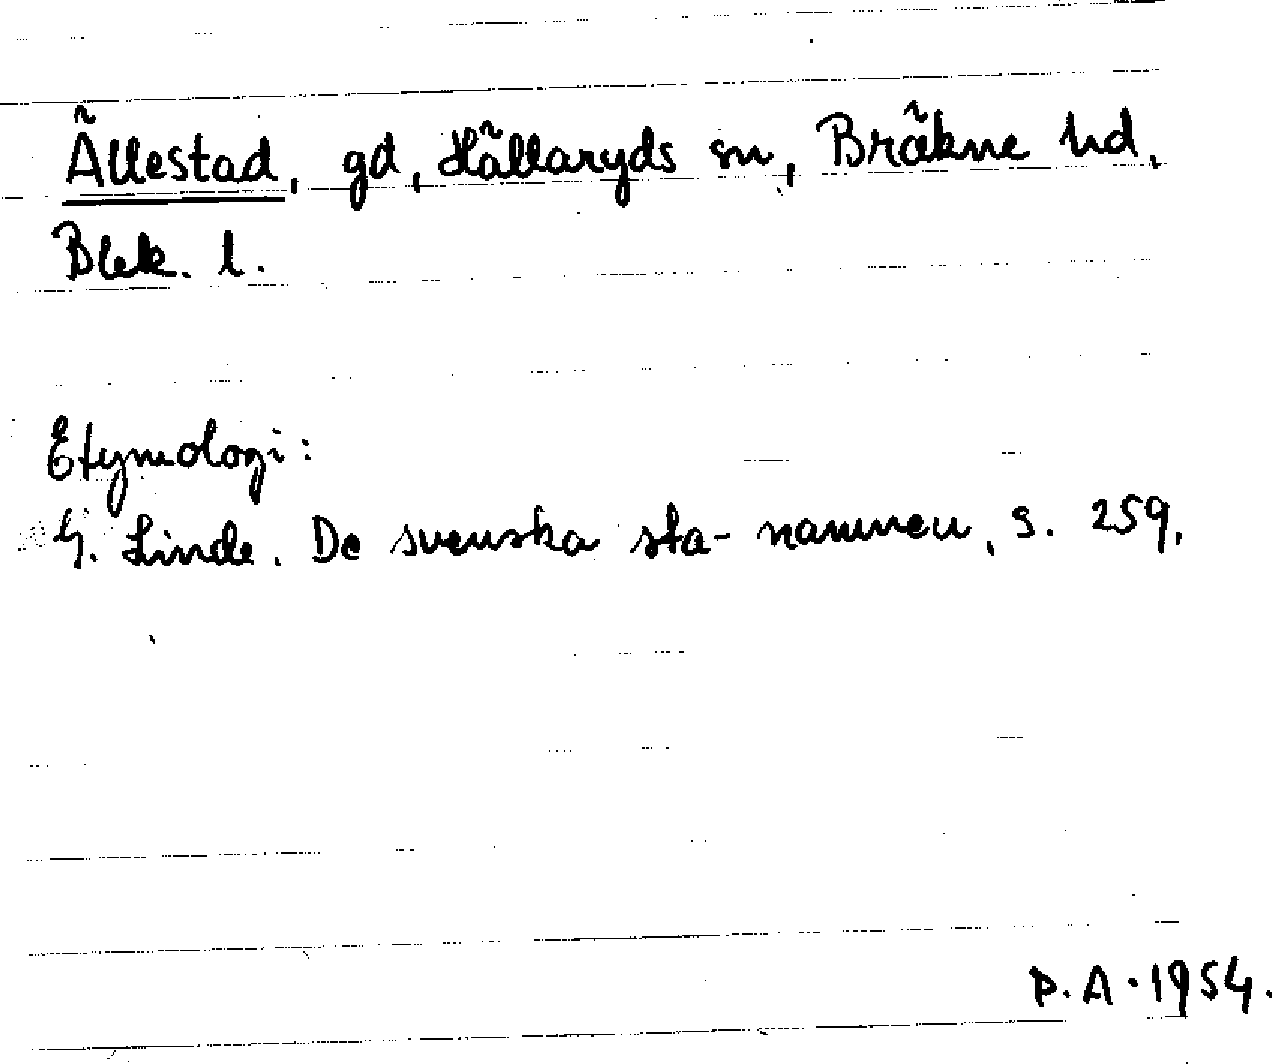 Ällestad, gd, Hällaryds sn, Bräkne hd,
Blek. l.
Etymologi:
G. Linde. De svenska sta-namnen, s. 259.
P.A. 1954.